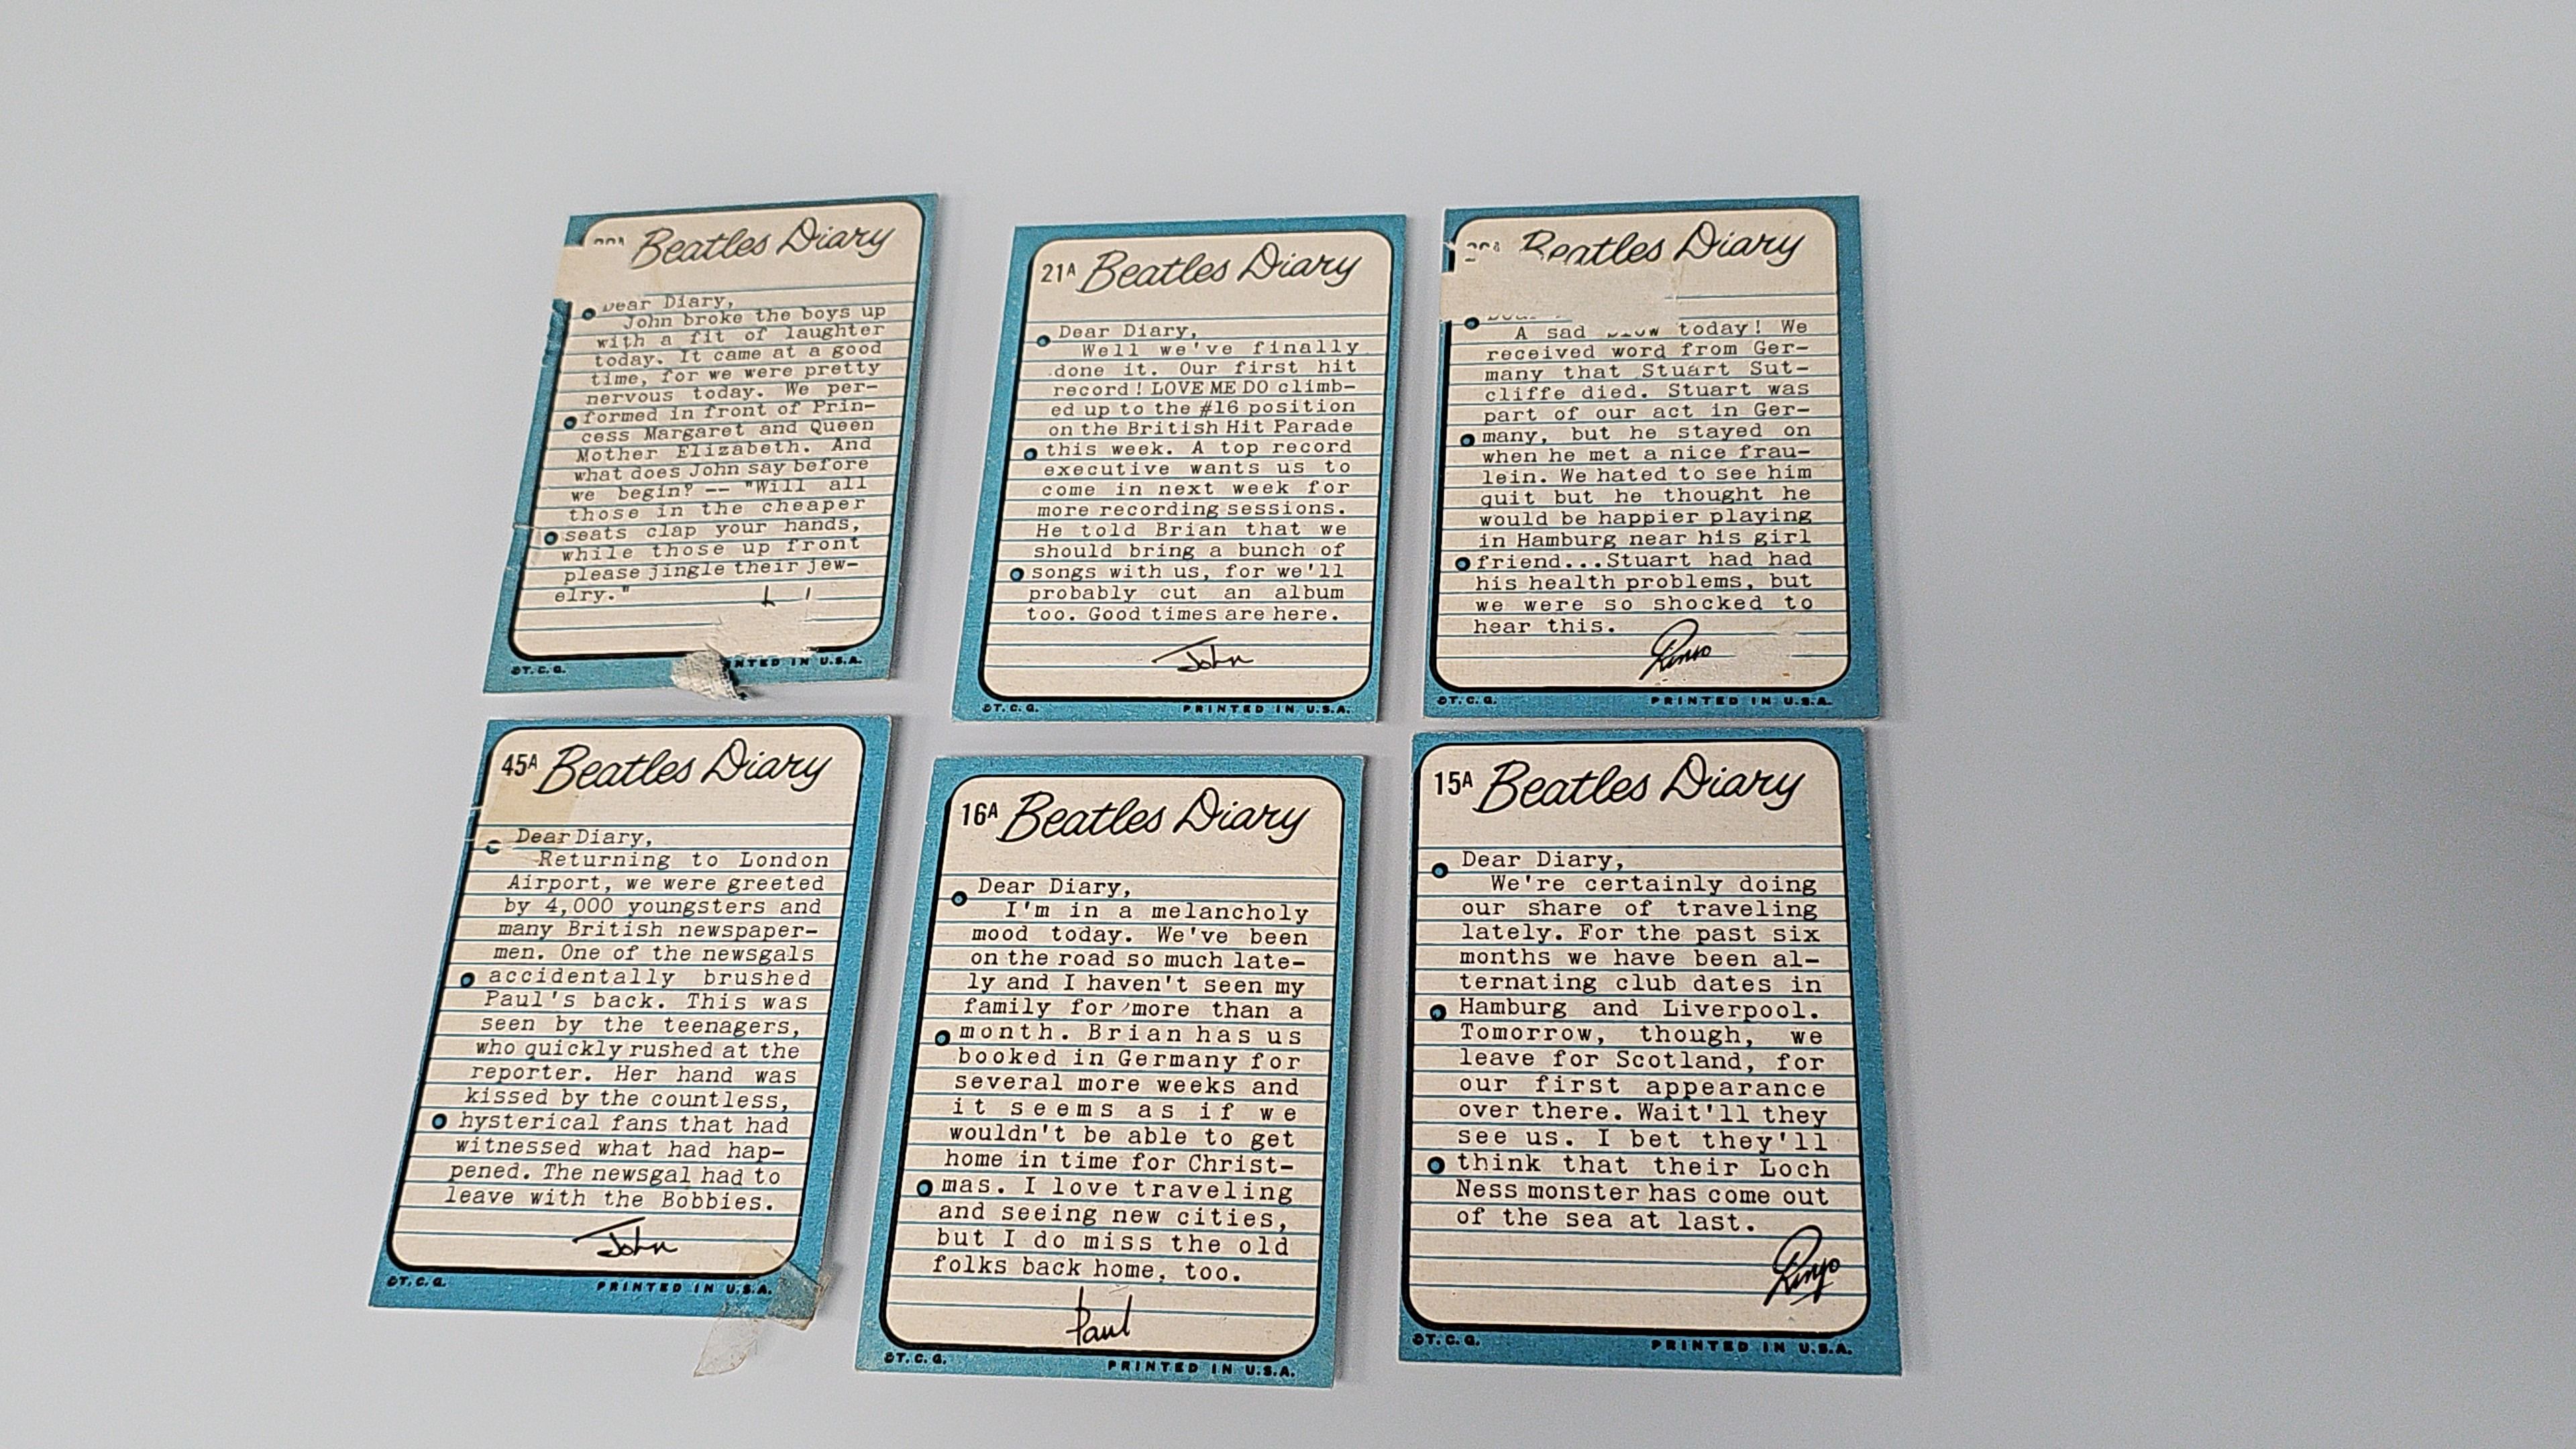 Beatles Diary
Dear Diary,
John broke the boys up
with a fit of laughter
today. It came at a good
time, for we were pretty
nervous today. We per-
formed in front of Prin-
cess Margaret and Queen
Mother Elizabeth. And
what does John say before
we begin? -- "Will all
those in the cheaper
seats clap your hands,
while those up front
please jingle their jew-
elry."
©T.C.G. IN U.S.A.
21A Beatles Diary
Dear Diary,
Well we've finally
done it. Our first hit
record! LOVE ME DO climb-
ed up to the #16 position
on the British Hit Parade
this week. A top record
executive wants us to
come in next week for
more recording sessions.
He told Brian that we
should bring a bunch of
songs with us, for we'll
probably cut an album
too. Good times are here.
John
©T.C.G. PRINTED IN U.S.A.
Beatles Diary
A sad today! We
received word from Ger-
many that Stuart Sut-
cliffe died. Stuart was
part of our act in Ger-
many, but he stayed on
when he met a nice frau-
lein. We hated to see him
quit but he thought he
would be happier playing
in Hamburg near his girl
friend...Stuart had had
his health problems, but
we were so shocked to
hear this.
Ringo
©T.C.G. PRINTED IN U.S.A.
45A Beatles Diary
Dear Diary,
Returning to London
Airport, we were greeted
by 4,000 youngsters and
many British newspaper-
men. One of the newsgals
accidentally brushed
Paul's back. This was
seen by the teenagers,
who quickly rushed at the
reporter. Her hand was
kissed by the countless,
hysterical fans that had
witnessed what had hap-
pened. The newsgal had to
leave with the Bobbies.
John
©T.C.G. PRINTED IN U.S.A.
16A Beatles Diary
Dear Diary,
I'm in a melancholy
mood today. We've been
on the road so much late-
ly and I haven't seen my
family for more than a
month. Brian has us
booked in Germany for
several more weeks and
it seems as if we
wouldn't be able to get
home in time for Christ-
mas. I love traveling
and seeing new cities,
but I do miss the old
folks back home, too.
Paul
©T.C.G. PRINTED IN U.S.A.
15A Beatles Diary
Dear Diary,
We're certainly doing
our share of traveling
lately. For the past six
months we have been al-
ternating club dates in
Hamburg and Liverpool.
Tomorrow, though, we
leave for Scotland, for
our first appearance
over there. Wait'll they
see us. I bet they'll
think that their Loch
Ness monster has come out
of the sea at last.
Ringo
©T.C.G. PRINTED IN U.S.A.